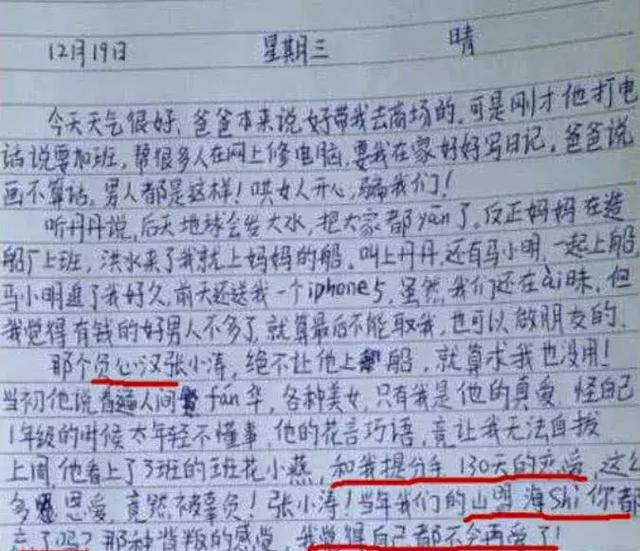 12月19日 星期三 晴
今天天气很好，爸爸本来说好带我去商场的，可是刚才他打电
话说要加班，帮很多人在网上修电脑，要我在家好好写日记。爸爸说
画不算话，男人都是这样！哄女人开心，骗我们！
听丹丹说，后天地球会发大水，把大家都yān了。反正妈妈在造
船厂上班，洪水来了我就上妈妈的船。叫上丹丹，还有马小明，一起上船，
马小明追了我好久，前天还送我一个iphone5，虽然我们还在ài昧，但
我觉得有钱的好男人不多了，就算最后不能取我，也可以做朋友的、
那个负心汉张小涛，绝不让他上船，就算求我也没用！
当初他说看遍人间fán华，各种美女，只有我是他的真爱，怪自己
1年级的时候太年轻不懂事，他的花言巧语，竟让我无法自拔
上周他看上了3班的班花小燕，和我提分手，130天的恋爱，这么
多恩爱，竟然被辜负！张小涛！当年我们的山明海Shi你都
忘了吗？那种背叛的感觉，我觉得自己都不会再爱了！